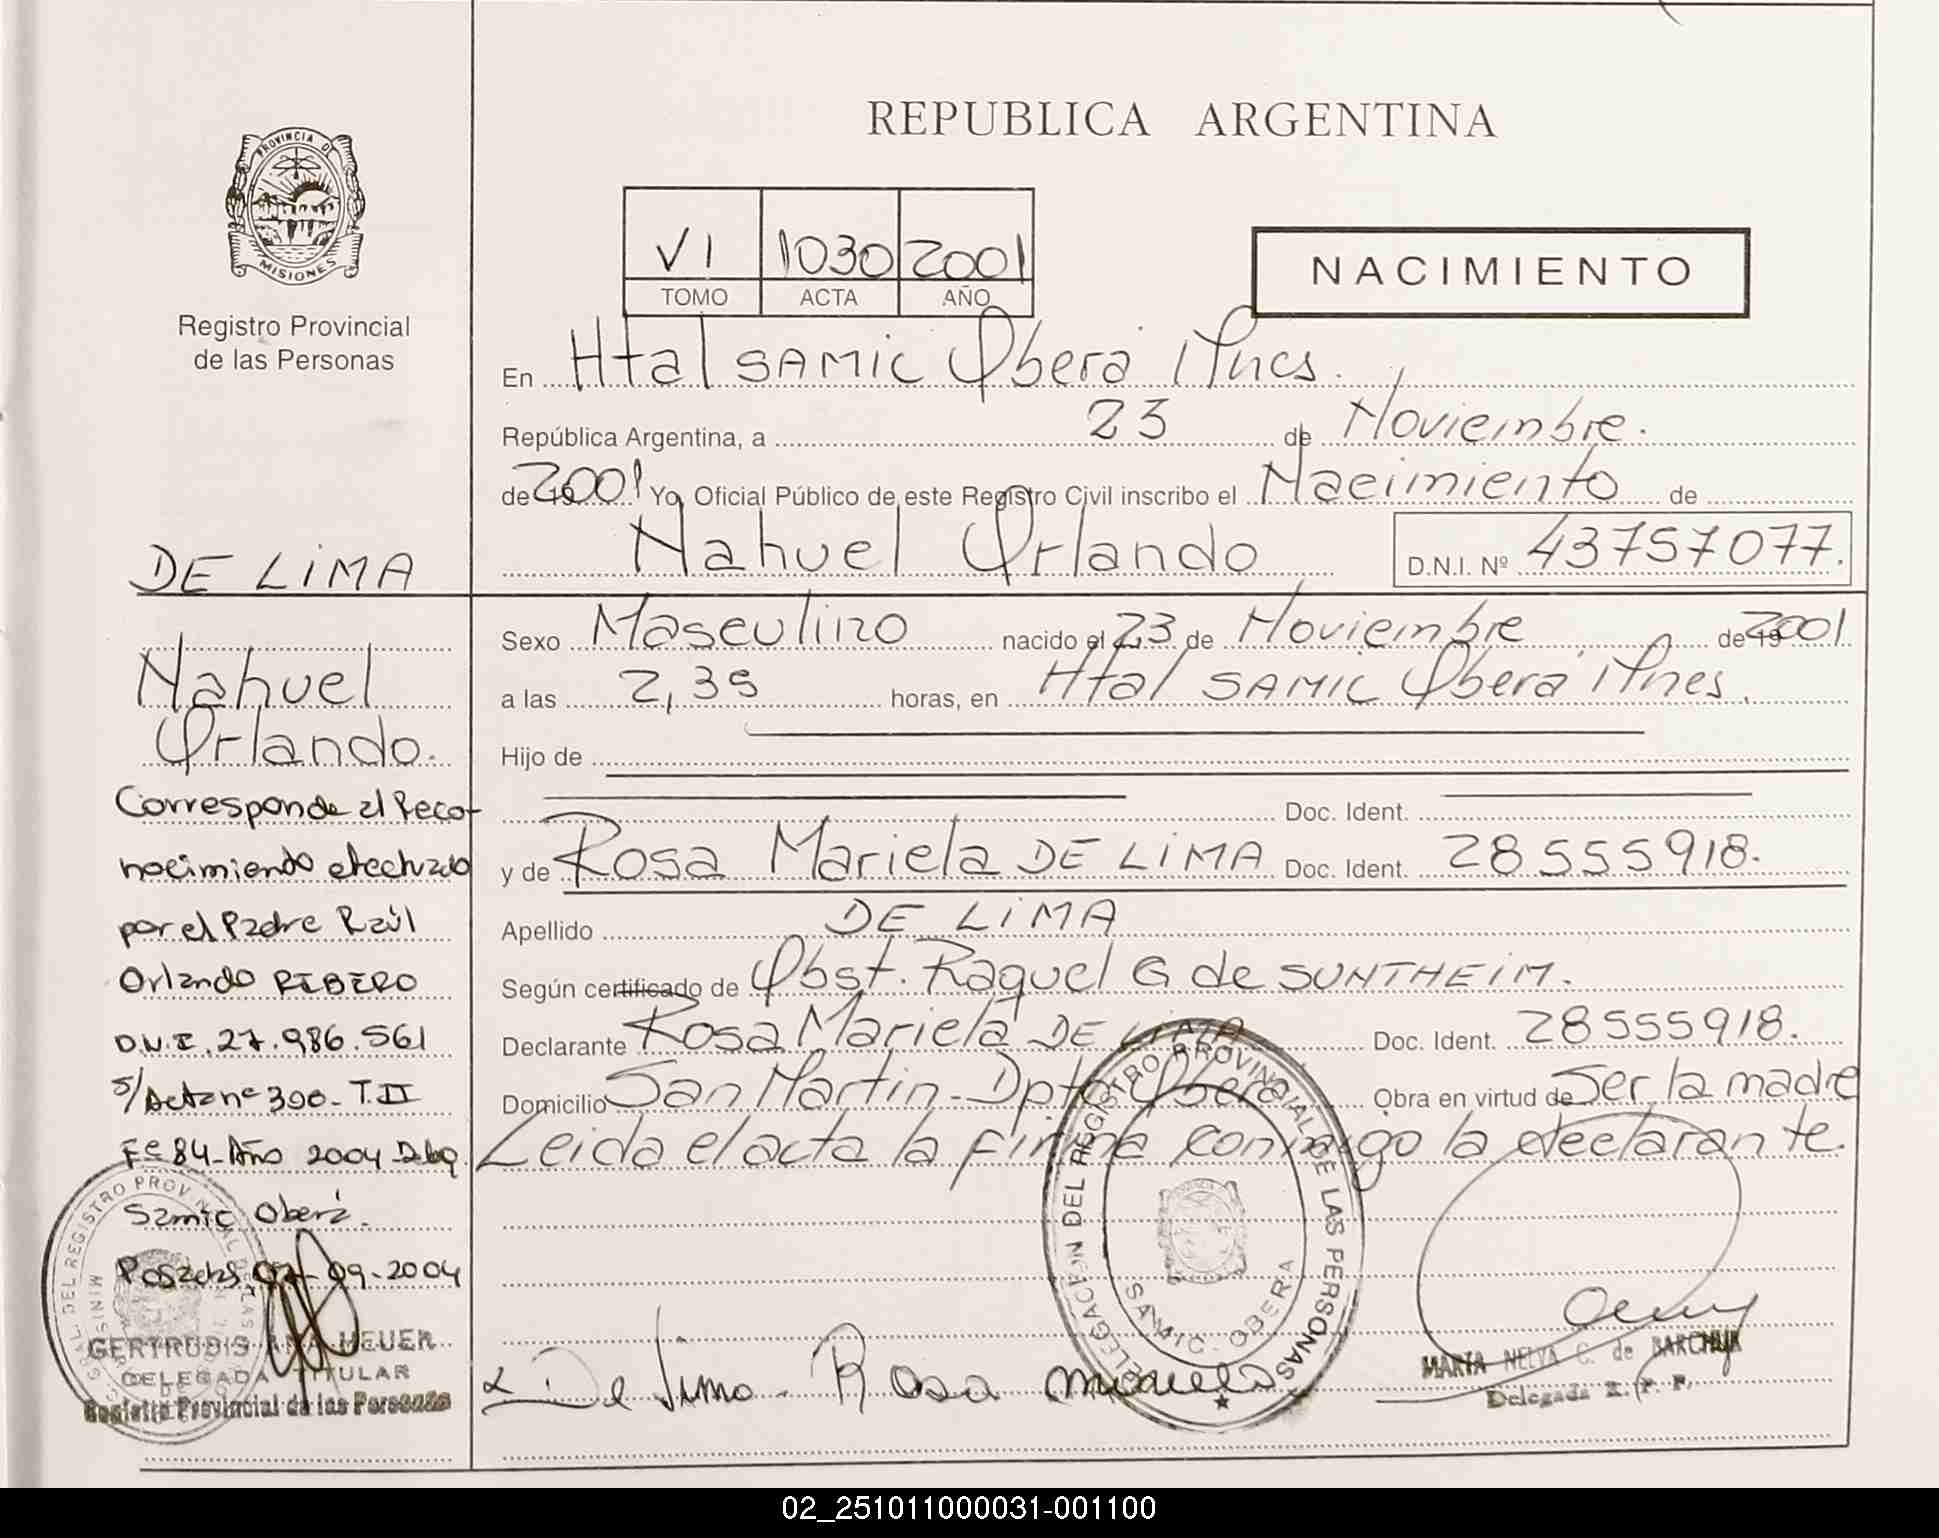 PROVINCIA DE
MISIONES
Registro Provincial
de las Personas
DE LIMA
Nahuel
Orlando.
Corresponde al Reco-
nocimiento efectuado
por el Padre Raúl
Orlando RIBERO
D.N.I. 27.986.561
s/Acta nº 390- T.II
Fº 84-Año 2004 Dlg.
Samic Oberá.
Posadas, 07-09-2004
GERTRUDIS ANA HEUER
DELEGADA TITULAR
Registro Provincial de las Personas
REPUBLICA ARGENTINA
VI 1030 2001
TOMO ACTA AÑO
NACIMIENTO
En Htal SAMIC Oberá Mnes.
República Argentina, a 23 de Noviembre.
de 19 2001 Yo, Oficial Público de este Registro Civil inscribo el Nacimiento de
Nahuel Orlando D.N.I. Nº 43757077.
Sexo Masculino nacido el 23 de Noviembre de 19 2001
a las 2,35 horas, en Htal SAMIC Oberá Mnes.
Hijo de
Doc. Ident.
y de Rosa Mariela DE LIMA Doc. Ident. 28555918.
Apellido DE LIMA
Según certificado de Obst. Raquel G de SUNTHEIM.
Declarante Rosa Mariela DE LIMA Doc. Ident. 28555918.
Domicilio San Martin - Dpto Oberá Obra en virtud de Ser la madre
Leida el acta la firma conmigo la declarante.
DELEGACION DEL REGISTRO PROVINCIAL DE LAS PERSONAS
SAMIC - OBERA
De Lima Rosa Mariela
MARIA NELVA C. de BARCHUK
Delegada R. P. P.
02_251011000031-001100